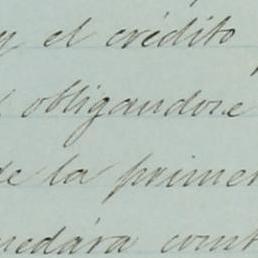 y el crédito
obligandose
de la primer
uedára const